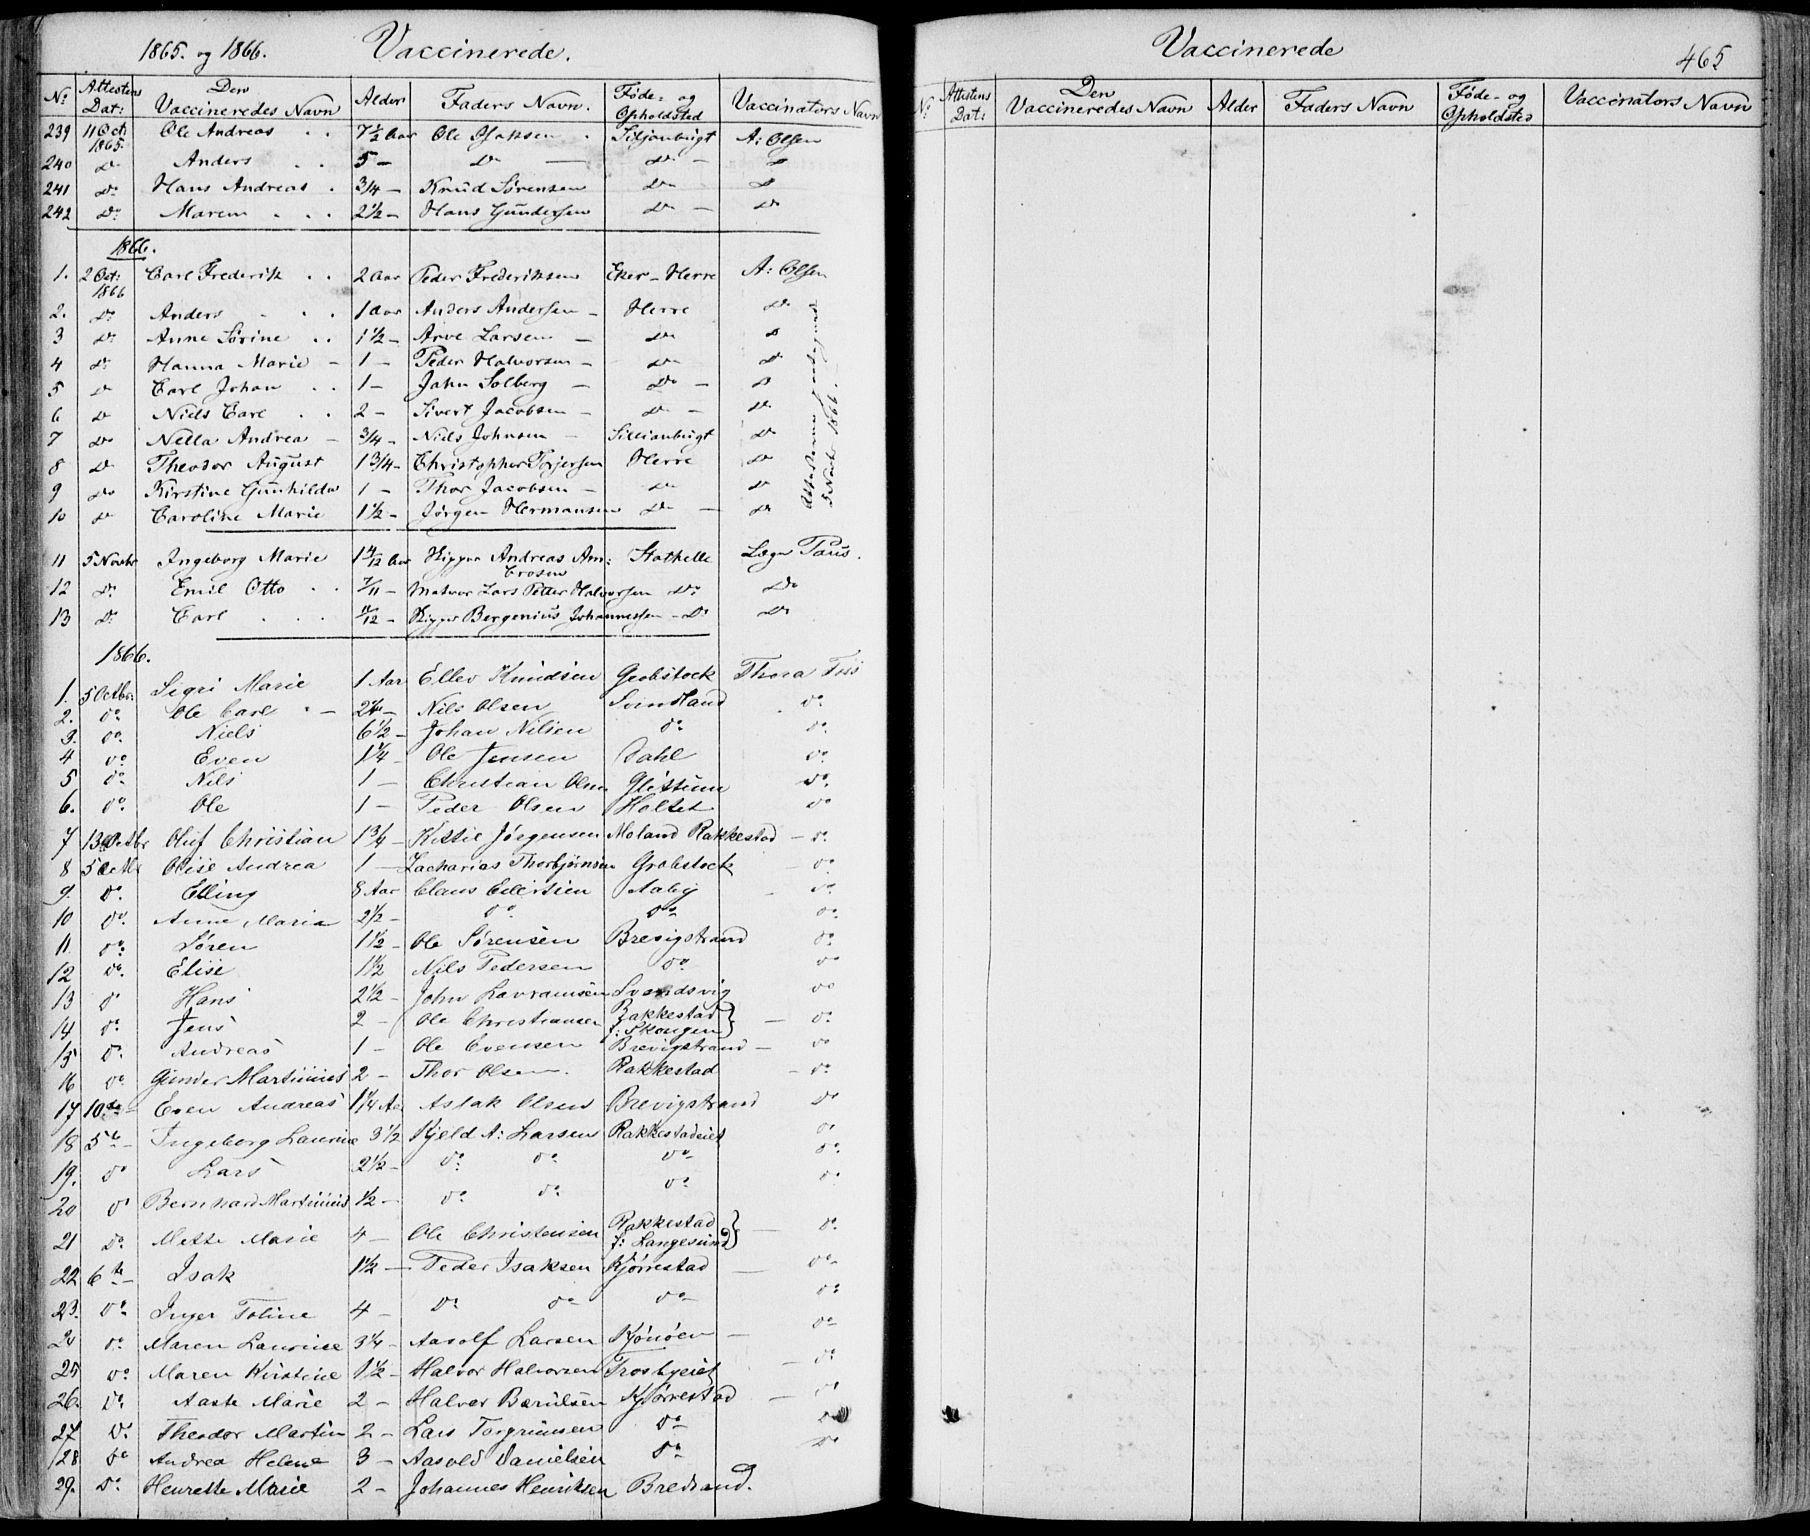 1865. og 1866. Vaccinerede.
No Attestens Dat: Den Vaccineredes Navn Alder Faders Navn. Føde- og Opholdsted Vaccinators Navn
239 11 Oct: 1865 Ole Andreas 7½ Aar Ole Isaksen Siljanbugt A: Olsen
240 Do Anders 5 - Do Do Do
241 Do Hans Andreas 3/4 - Knud Sørensen Do Do
242 Do Maren 2½ - Hans Gundersen Do Do
1866.
1. 2 Oct: 1866 Carl Frederik 2 Aar Peder Frederiksen Eker - Herre A: Olsen
2. Do Anders 1 Aar Anders Andersen - Herre Do
3 Do Anne Sørine 1½ - Arve Larsen - Do Do
4 Do Hanna Marie - 1 - Peder Halvorsen - Do Do
5 Do Carl Johan 1 - Jahn Solberg - Do - Do
6 Do Niels Carl 2 - Sivert Jacobsen - Do - Do
7 Do Nella Andrea - 3/4 - Niels Johnsen - Sillianbugt Do
8 Do Theodor August 1 3/4 - Christopher Torjersen Herre Do
9 Do Kirstine Gunhilda 1 - Thor Jacobsen - Do Do
10 Do Caroline Marie 1½ - Jørgen Hermansen Do - Do
5 Novbr 1866.
11 5 Novbr Ingeborg Marie Aar Skipper Andreas Ambrosen Stathelle Læge Paus.
12 Do Emil Otto 7/11 - Matros Lars Petter Halvorsen Do Do
13 Do Carl 11/12 - Skipper Bergenius Johannessen - Do Do
1866.
1. 5 Octbr: Sigri Marie 1 Aar Ellev Knudsen Grobstock Thora Friis
2. Do Ole Carl - Nils Olsen Svinland Do
3. Do Niels 6½ - Johan Nilsen Do Do
4 Do Even 1¼ - Ole Jensen Dahl Do
5 Do Nils 1 - Christian Olsen Do
6. Do Ole 1 - Peder Olsen Holtet Do
7 13 Octbr Oluf Christian 1 3/4 - Kittil Jørgensen Moland Rakkestad - Do
8 5 Octbr Olise Andrea 1 - Zacharias Thorbjørnsen Grobstock Do
9. Do Elling 8 Aar Claus Eilertsen Aaby Do
10 Do Anne Maria 2½ - Do Do Do
11 Do Søren 1½ - Ole Sørensen Brevigstrand Do
12 Do Elise 1½ Nils Pedersen Do Do
13 Do Hans 2½ - John Lavransen Svendsvig Do
14 Do Jens 2 - Ole Christiansen Rakkestad f: Skougen - Do
15 Do Andreas 1 - Ole Evensen Brevigstrand - Do
16 Do Gunder Martinius 2 - Thor Olsen. Rakkestad - Do
17 10de - Even Andreas 1¼ Aar Aslak Olsen Brevigstrand Do
18 5te - Ingeborg Laurine 3½ Kjeld A: Larsen Rakkestadeiet Do
19. Do Lars 2½ - Do Do Do Do
20 Do Bernhard Martinius ½ - Do Do Do Do
21 Do Mette Marie 4 - Ole Christensen Rakkestad f: Langesund - Do
22 6te - Isak 1½ - Peder Isaksen Kjørrestad - Do
23. Do Inger Toline 4 - Do Do Do Do
24 Do Maren Laurine 3¼ - Aasolf Larsen Kjønøen - Do
25 Do Maren Kirstine 1½ - Halvor Halvorsen Trosbyeiet - Do
26. Do Aaste Marie 2 - Halvor Bærulsen Kjørrestad - Do
27 Do Theodor Martin 2 - Lars Torgrimsen Do Do
28 Do Andrea Helene 3 - Aasold Danielsen Do Do
29. Do Henrette Marie 2 - Johannes Henriksen Bredsand.
Vaccinerede 465
No Attestens Dat: Den Vaccineredes Navn Alder Faders Navn Føde- og Opholdsted Vaccinators Navn